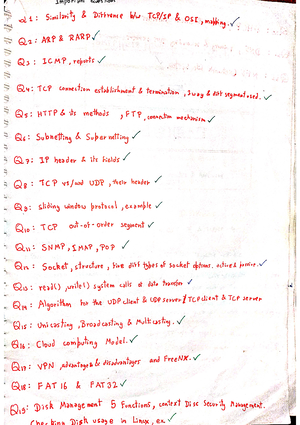 Important Question
Q1: Similarity & Difference b/w TCP/IP & OSI, mapping. ✓
Q2: ARP & RARP ✓
Q3: ICMP, reports ✓
Q4: TCP connection establishment & termination, 3 way & segment used. ✓
Q5: HTTP & its methods, FTP, connection mechanism ✓
Q6: Subnetting & Supernetting ✓
Q7: IP header & its fields ✓
Q8: TCP vs/and UDP, their header ✓
Q9: sliding window protocol, example ✓
Q10: TCP out-of-order segment ✓
Q11: SNMP, IMAP, POP ✓
Q12: Socket, structure, types of socket options. active & passive. ✓
Q13: read(), write() system calls & data transfer ✓
Q14: Algorithm for the UDP client & UDP server / TCP client & TCP server
Q15: Unicasting, Broadcasting & Multicasting. ✓
Q16: Cloud computing Model. ✓
Q17: VPN, advantages & disadvantages and FreeNX. ✓
Q18: FAT16 & FAT32 ✓
Q19: Disk Management 5 Functions, context Disc Security Management.
Checking Disk usage in Linux, ex ✓